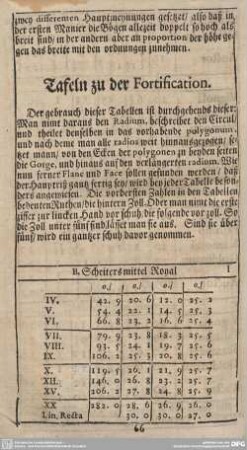 zwey differenten Hauptmeynungen gesetzet/ also daß in
der ersten Manier die Bögen allezeit doppelt so hoch als
breit sind/ in der andern aber an proportion der höhe gegen
das breite mit den ordnungen zunehmen.
Tafeln zu der Fortification.
Der gebrauch dieser Tabellen ist durchgehends dieser:
Man nimt daraus den Radium, beschreibet den Circul/
und theilet denselben in das vorhabende polygonum,
und nach deme man alle radios weit hinnausgezogen/ setzet
man/ von den Ecken der polygonen zu beyden seiten
die Gorge, und hinaus auf den verlängerten radium. Wie
nun ferner Flane und Face sollen gefunden werden/ daß
der Hauptriß gantz fertig sey/ wird bey jeder Tabelle besonders
angewiesen. Die vordersten Zahlen in den Tabellen
bedeuten Ruthen/ die hintern Zoll. Oder man nimt die erste
ziffer zur lincken Hand vor schuh/ die folgende vor zoll. So
die Zoll unter fünf sind/ lässet man sie aus. Sind sie über
fünf/ wird ein gantzer schuh davor genommen.
II. Scheiters mittel Royal 1
IV. 42. 9 20. 6 12. 0 25. 2
V. 54. 4 22. 1 14. 5 25. 3
VI. 66. 8 23. 2 16. 6 25. 4
VII. 79. 9 23. 8 18. 3 25. 5
VIII. 93. 5 24. 1 19. 7 25. 6
IX. 106. 2 25. 3 20. 8 25. 6
X. 119. 5 26. 1 21. 9 25. 7
XII. 146. 0 26. 8 23. 2 25. 7
XV. 206. 2 27. 8 24. 8 25. 9
XX 282. 0 28. 6 26. 9 26. 0
Lin. Recta 30. 0 30. 0 27. 0
66